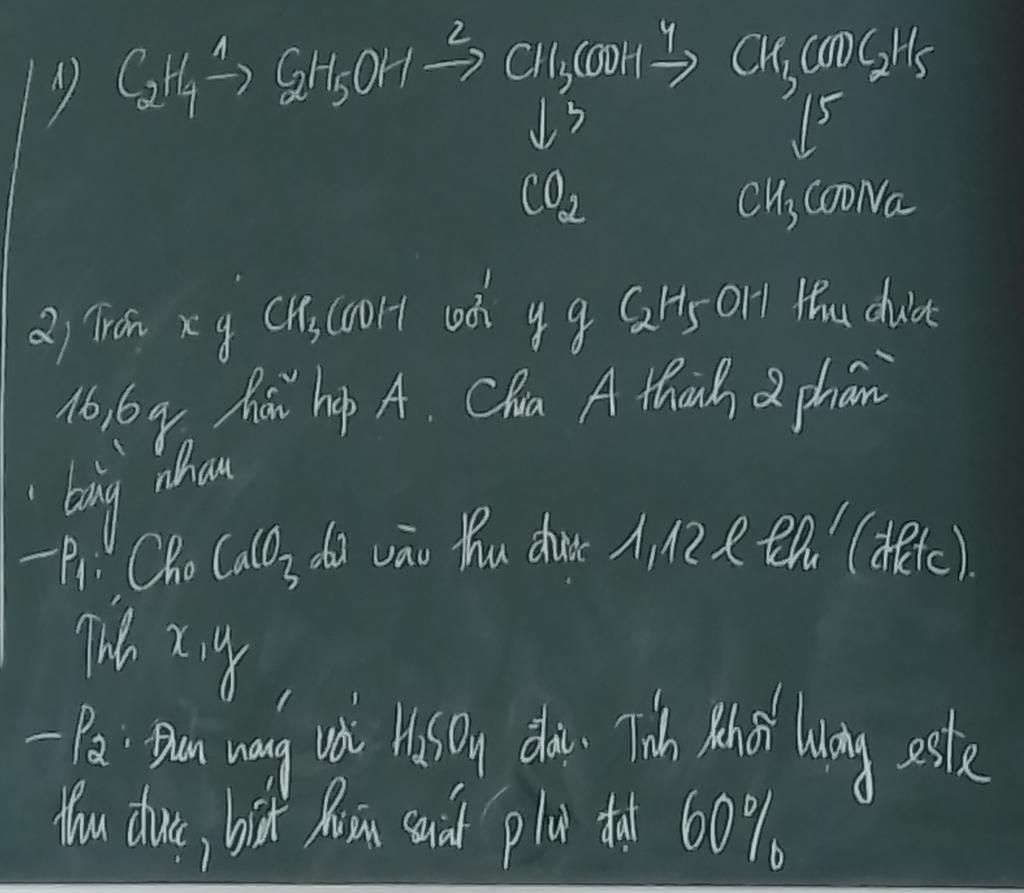 1) C₂H₄ →¹ C₂H₅OH →² CH₃COOH →⁴ CH₃COOC₂H₅
↓3 ↓5
CO₂ CH₃COONa
2, Trộn x g CH₃COOH với y g C₂H₅OH thu được
16,6g hỗn hợp A. Chia A thành 2 phần
bằng nhau
- P₁: Cho CaCO₃ dư vào thu được 1,12 l khí (đktc).
Tính x, y
- P₂: Đun nóng với H₂SO₄ đặc. Tính khối lượng este
thu được, biết hiệu suất pư đạt 60%